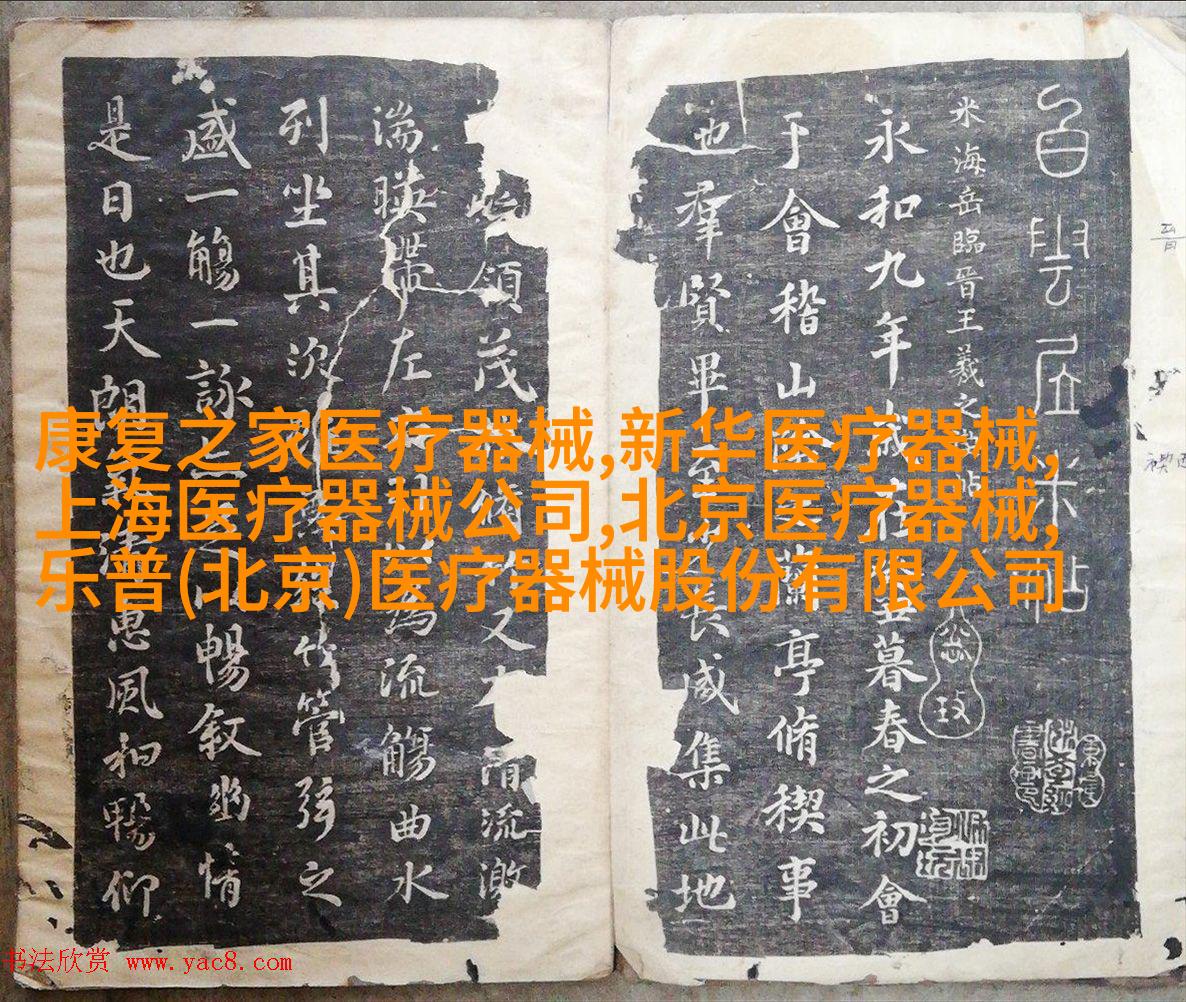 白雲居米帖
米海岳臨晉王羲之帖
永和九年歲在暮春之初會
于會稽山陰蘭亭脩禊事
也羣賢畢至長咸集此地
領茂又有清流激
湍暎帶左右為流觴曲水
列坐其次竹管弦之
盛一觴一詠暢叙幽情
是日也天朗氣清惠風和暢仰
康复之家医疗器械,新华医疗器械,
上海医疗器械公司,北京医疗器械,
乐普(北京)医疗器械股份有限公司
书法欣赏 www.yac8.com